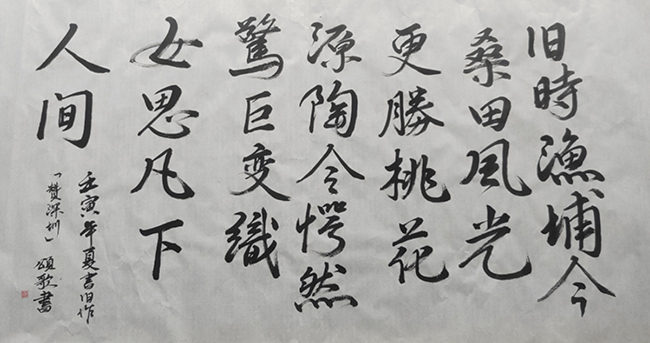 旧時漁埔今
桑田風光
更勝桃花
源陶令愕然
驚巨变織
女思凡下
人间
壬寅年夏書旧作
「赞深圳」 頌歌書